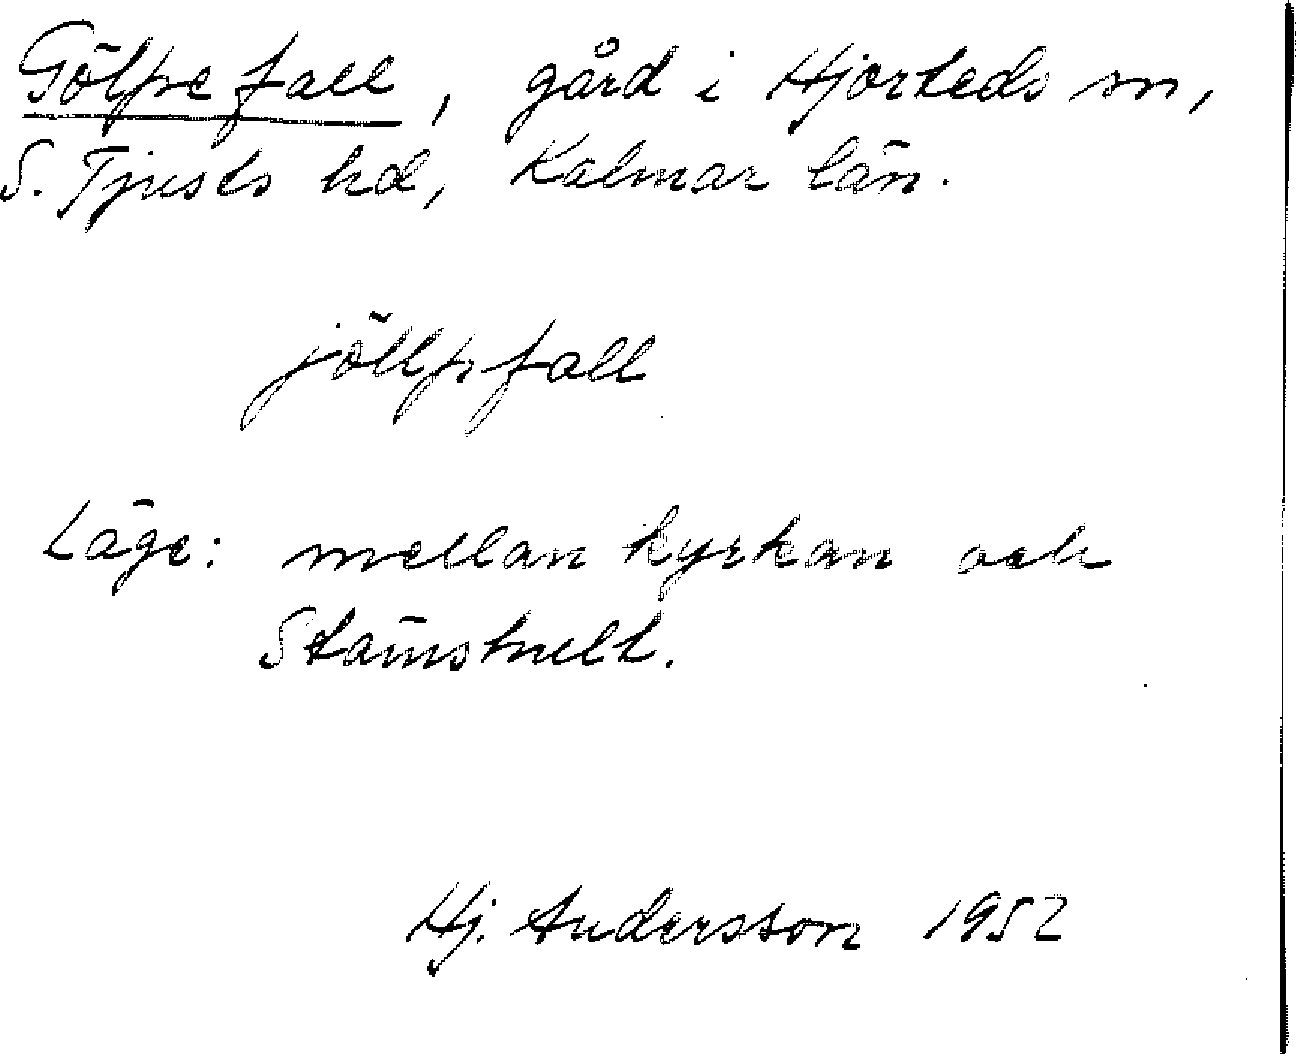 Gölpefall, gård i Hjorteds sn,
S. Tjusts hd, Kalmar län.
jöllpfall
Läge: mellan kyrkan och
Stämshult.
Hj. Andersson 1952